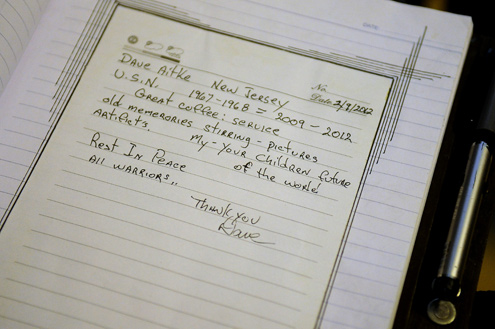 DATE
No
Date 3/8/2012
Dave Aitke New Jersey
U.S.N. 1967-1968 = 2009 - 2012
Great coffee: service
old memerories stirring - pictures
Artifacts. My - your children future
of the world
Rest In Peace
All Warriors..
Thank you
Dave